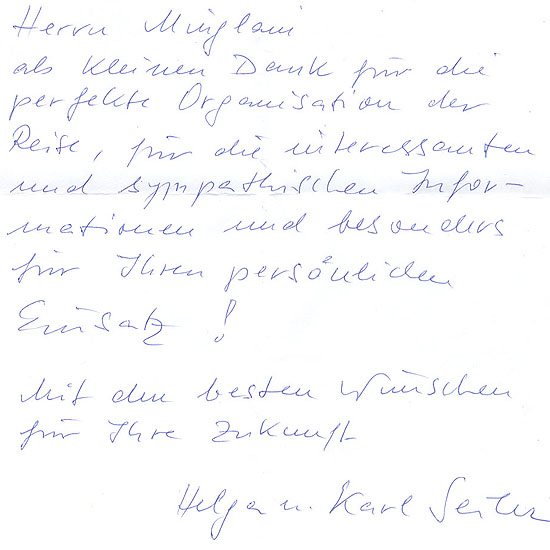 Herrn Minglani
als kleinen Dank für die
perfekte Organisation der
Reise, für die interessanten
und sympathischen Infor-
mationen und besonders
für Ihren persönlichen
Einsatz !
Mit den besten Wünschen
für Ihre Zukunft
Helga u. Karl Seiler